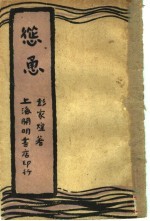 慫恿
彭家煌著
上海開明書店印行